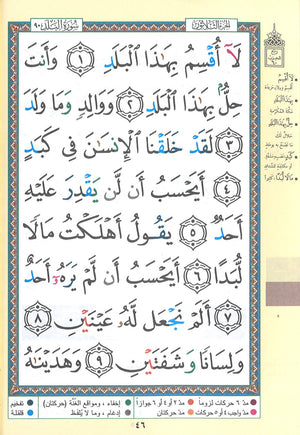 الجزء الثلاثون
سورة البلد ٩٠
لَآ أُقْسِمُ بِهَٰذَا ٱلْبَلَدِ ١ وَأَنتَ
حِلٌّۢ بِهَٰذَا ٱلْبَلَدِ ٢ وَوَالِدٍ وَمَا وَلَدَ
٣ لَقَدْ خَلَقْنَا ٱلْإِنسَٰنَ فِى كَبَدٍ
٤ أَيَحْسَبُ أَن لَّن يَقْدِرَ عَلَيْهِ
أَحَدٌ ٥ يَقُولُ أَهْلَكْتُ مَالًا
لُّبَدًا ٦ أَيَحْسَبُ أَن لَّمْ يَرَهُۥٓ أَحَدٌ
٧ أَلَمْ نَجْعَل لَّهُۥ عَيْنَيْنِ ٨
وَلِسَانًا وَشَفَتَيْنِ ٩ وَهَدَيْنَٰهُ
مدّ ٦ حركات لزوماً مدّ ٢ أو ٤ أو ٦ جوازاً إخفاء، ومواقع الغنّة (حركتان) تفخيم
مدّ واجب ٤ أو ٥ حركات مدّ حركتان إدغام، وما لا يُلفظ قلقلة
٤٦